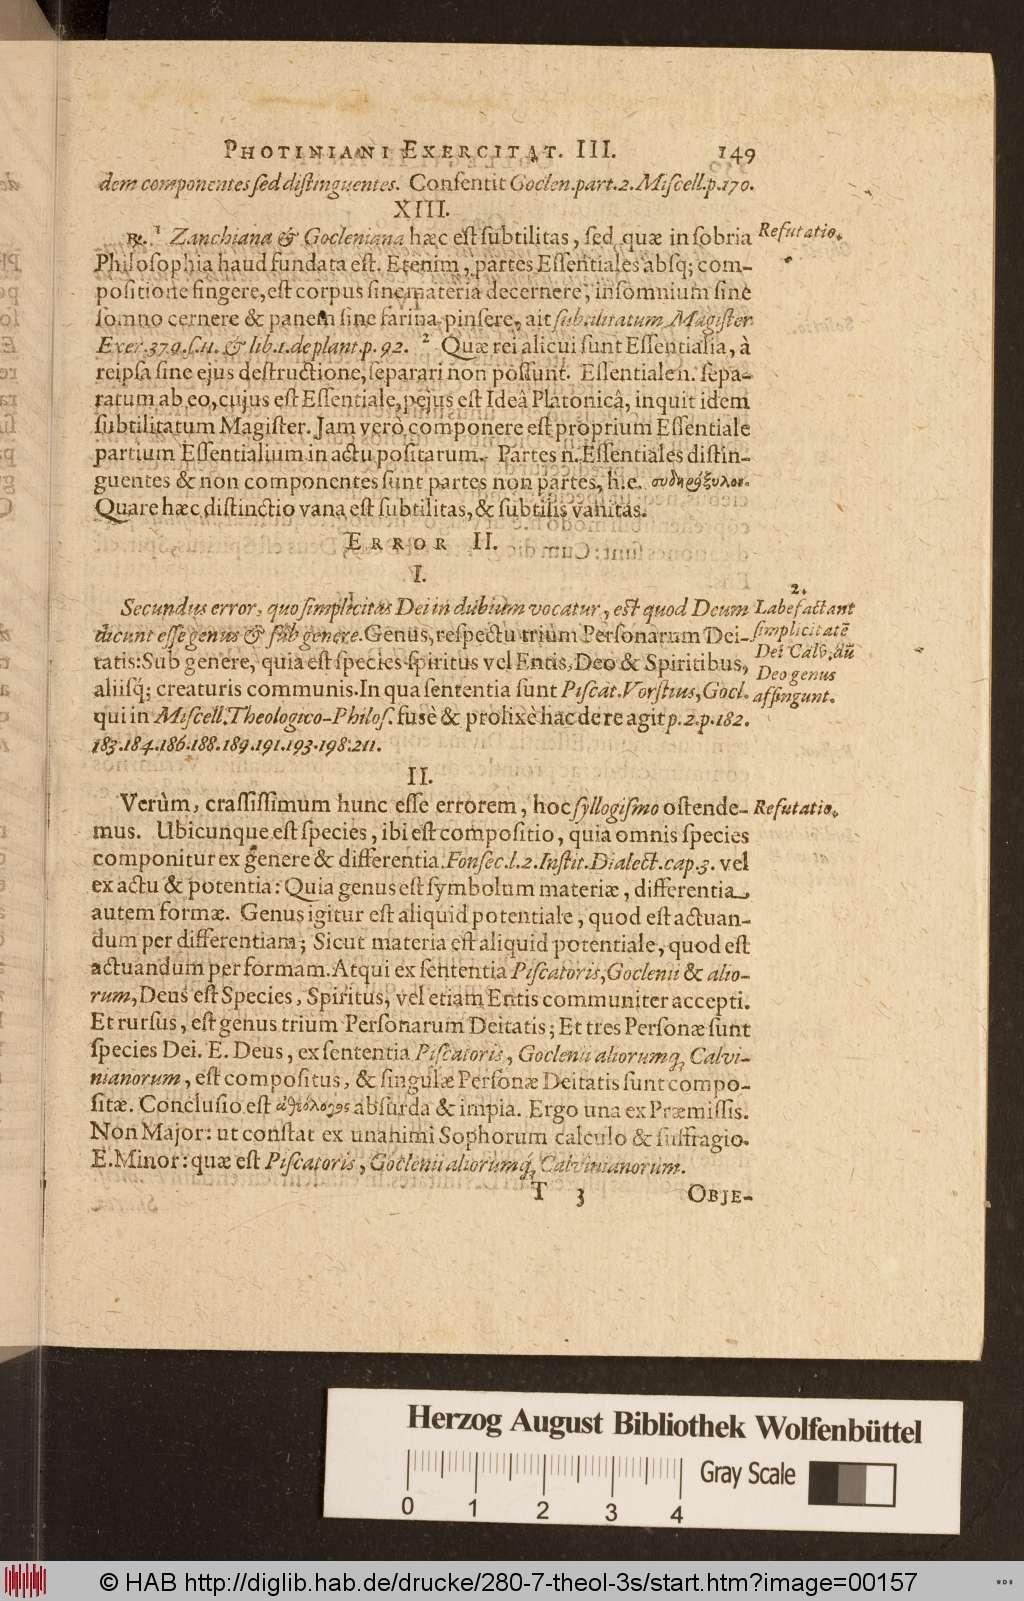 PHOTINIANI EXERCITAT. III. 149
dem componentes sed distinguentes. Consentit Goclen. part. 2. Miscell. p. 170.
XIII.
℞. 1 Zanchiana & Gocleniana hæc est subtilitas, sed quæ in sobria
Refutatio.
Philosophia haud fundata est. Etenim, partes Essentiales absq; com-
positione fingere, est corpus sine materia decernere, insomnium sine
somno cernere & panem sine farina pinsere, ait subtilitatum Magister
Exer. 379. s. 11. & lib. 1. de plant. p. 92. 2 Quæ rei alicui sunt Essentialia, à
reipsa sine ejus destructione, separari non possunt. Essentiale n. sepa-
ratum ab eo, cujus est Essentiale, pejus est Ideâ Platonicâ, inquit idem
subtilitatum Magister. Jam verò componere est proprium Essentiale
partium Essentialium in actu positarum. Partes n. Essentiales distin-
guentes & non componentes sunt partes non partes, h.e.
Quare hæc distinctio vana est subtilitas, & subtilis vanitas.
ERROR II.
I.
Secundus error, quo simplicitas Dei in dubium vocatur, est quod Deum
dicunt esse genus & sub genere. Genus, respectu trium Personarum Dei-
tatis: Sub genere, quia est species spiritus vel Entis, Deo & Spiritibus,
aliisq́; creaturis communis. In qua sententia sunt Piscat. Vorstius, Gocl.
qui in Miscell. Theologico-Philos. fusè & prolixè hac de re agit p. 2. p. 182.
183. 184. 186. 188. 189. 191. 193. 198. 211.
2.
Labefactant
simplicitatẽ
Dei Calv. dũ
Deo genus
affingunt.
II.
Verùm, crassissimum hunc esse errorem, hoc syllogismo ostende-
Refutatio.
mus. Ubicunque est species, ibi est compositio, quia omnis species
componitur ex genere & differentia. Fonsec. l. 2. Instit. Dialect. cap. 3. vel
ex actu & potentia: Quia genus est symbolum materiæ, differentia
autem formæ. Genus igitur est aliquid potentiale, quod est actuan-
dum per differentiam; Sicut materia est aliquid potentiale, quod est
actuandum per formam. Atqui ex sententia Piscatoris, Goclenii & alio-
rum, Deus est Species, Spiritus, vel etiam Entis communiter accepti.
Et rursus, est genus trium Personarum Deitatis; Et tres Personæ sunt
species Dei. E. Deus, ex sententia Piscatoris, Goclenii aliorumq; Calvi-
nianorum, est compositus, & singulæ Personæ Deitatis sunt compo-
sitæ. Conclusio est absurda & impia. Ergo una ex Præmissis.
Non Major: ut constat ex unanimi Sophorum calculo & suffragio.
E. Minor: quæ est Piscatoris, Goclenii aliorumq́; Calvinianorum.
T 3 OBJE-
Herzog August Bibliothek Wolfenbüttel
Gray Scale
0 1 2 3 4
© HAB http://diglib.hab.de/drucke/280-7-theol-3s/start.htm?image=00157